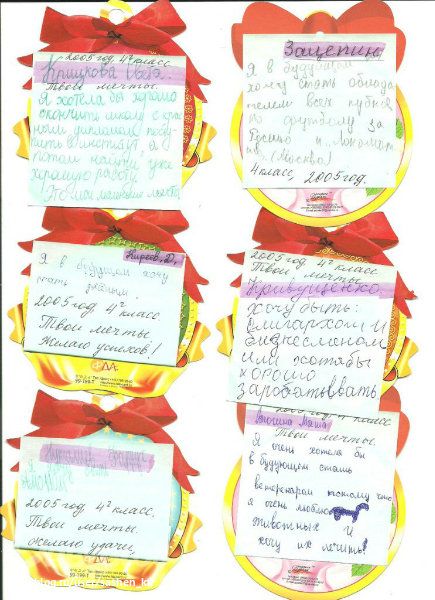 2005год. 4г класс
Крицкова Света.
Твои мечты.
Я хотела бы хорошо
окончить школу с крас
ным дипломом посту-
пить в институт, а
потом найти уже
хорошую работу
Это мои маленькие мечты
Зацепин
Я в будущем
хочу стать облада
телем всех кубков
по футболу за
и Локомоти
(Москва)
4класс, 2005год.
Киреев. Д.
Я в будущем хочу
стать
2005год. 4г класс
Твои мечты.
Желаю успехов!
ДА.
2005год. 4г класс
Твои мечты.
Кривущенко
хочу быть:
олигархом И
бизнесменом
или хотябы
хорошо
заробатьввать
Я хочу быть
2005год. 4г класс.
Твои мечты.
Желаю удачи,
2005год. 4г класс
Маша
Твои мечты.
Я очень хотела бы
в будующем стать
ветеренаром потому что
я очень люблю
животных И
хочу их лечить!